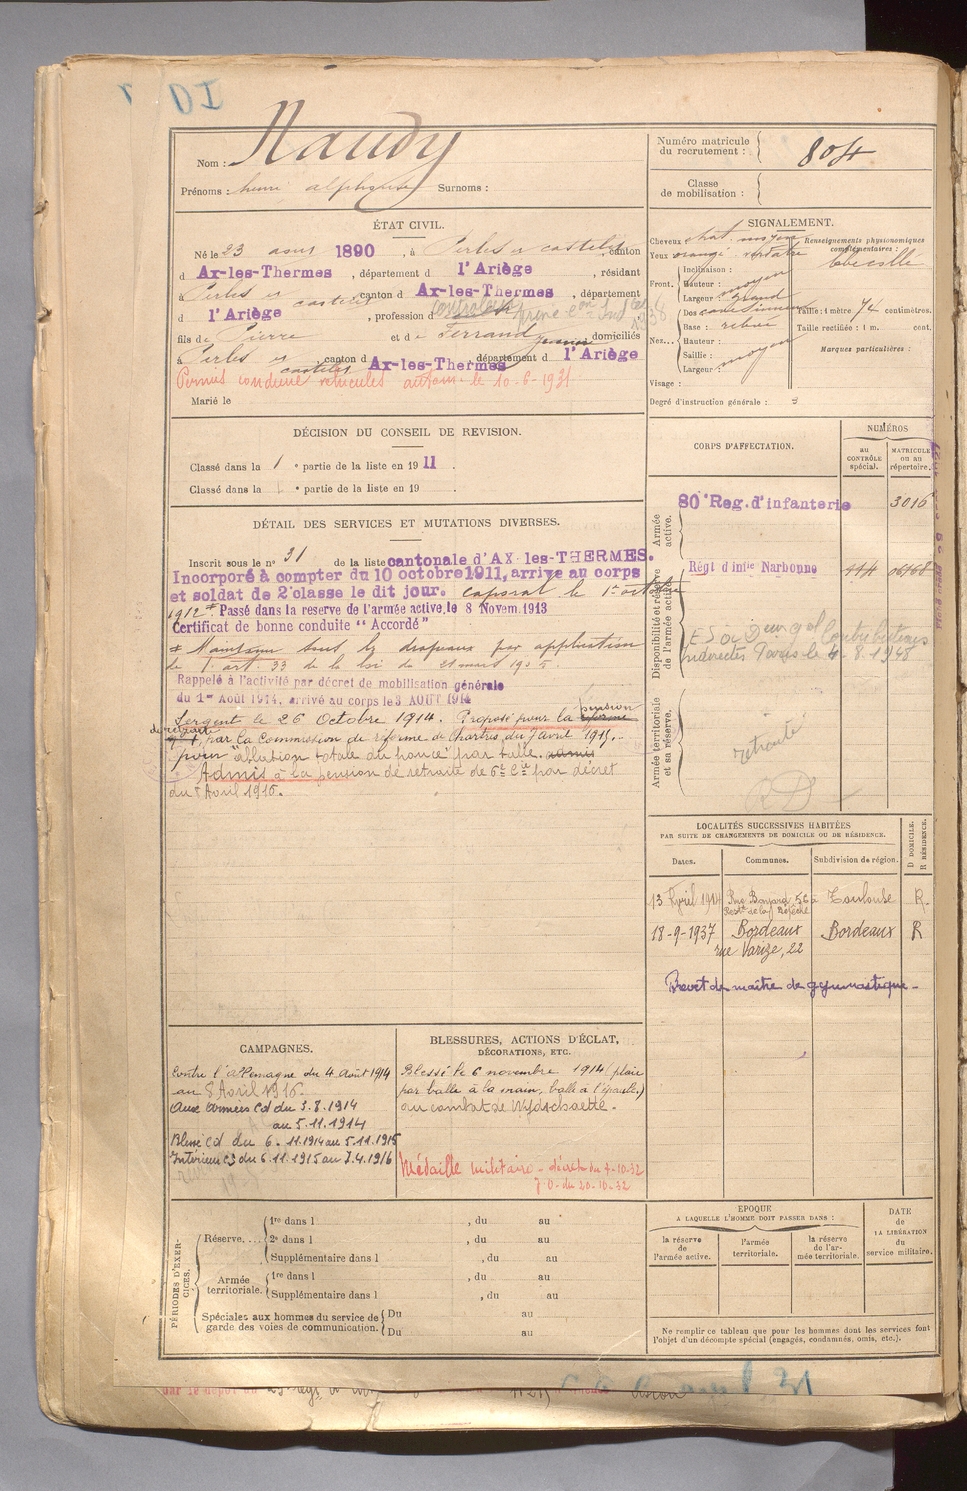 Nom : Naudy
Prénoms : henri alphonse Surnoms :
Numéro matricule du recrutement : 804
Classe de mobilisation :
ÉTAT CIVIL.
Né le 23 aout 1890, à Perles et castelet, canton
d Ax-les-Thermes, département d l'Ariège, résidant
à Perles et castelet, canton d Ax-les-Thermes, département
d l'Ariège, profession d
fils de Pierre et de Ferrand domiciliés
à Perles et castelet, canton d Ax-les-Thermes, département d l'Ariège
Permis conduire véhicules autom le 10-6-1931
Marié le
SIGNALEMENT.
Cheveux chat. moyen
Yeux orangé verdâtre
Renseignements physionomiques complémentaires :
Front. Inclinaison :
Hauteur : moyen
Largeur : grand
Nez. Dos
Base : relevé
Hauteur :
Saillie :
Largeur : moyen
Visage :
Taille : 1 mètre 74 centimètres.
Taille rectifiée : 1 m. cent.
Marques particulières :
Degré d'instruction générale : 3
DÉCISION DU CONSEIL DE REVISION.
Classé dans la 1e partie de la liste en 1911.
Classé dans la e partie de la liste en 19 .
DÉTAIL DES SERVICES ET MUTATIONS DIVERSES.
Inscrit sous le no 31 de la liste cantonale d'AX-les-THERMES.
Incorporé à compter du 10 octobre 1911, arrivé au corps
et soldat de 2e classe le dit jour. caporal le 1er octobre
1912 + Passé dans la reserve de l'armée active, le 8 Novem. 1913
Certificat de bonne conduite "Accordé"
+ Maintenu sous les drapeaux par application
de l'art 33 de la loi du 21 mars 1905.
Rappelé à l'activité par décret de mobilisation générale
du 1er Août 1914, arrivé au corps le 3 AOUT 1914
Sergent le 26 Octobre 1914. Proposé pour la réforme pension
de retraite
par la Commission de réforme de Chartres du 7 avril 1915.
pour "ablation totale du pouce" par balle. admis
Admis à la pension de retraite de 6e Cie par décret
du 8 Avril 1916.
CORPS D'AFFECTATION.
NUMÉROS
au CONTRÔLE spécial.
MATRICULE ou au répertoire.
Armée active.
80e Reg. d'infanterie 3016
Disponibilité et réserve de l'armée active.
Régt d'infie Narbonne
Contributions
Indirectes Paris le 4.8.1948
Armée territoriale et sa réserve.
retraité
RD
LOCALITÉS SUCCESSIVES HABITÉES
PAR SUITE DE CHANGEMENTS DE DOMICILE OU DE RÉSIDENCE.
Dates. Communes. Subdivision de région. D DOMICILE. R RÉSIDENCE.
13 Avril 1914 Rue Bayard 56 à Toulouse R.
18-9-1937 Bordeaux Bordeaux R
rue Varize, 22
Brevet de maître de gymnastique -
CAMPAGNES.
Contre l'allemagne du 4 Août 1914
au 8 Avril 1916.
Aux armées CD du 3.8.1914
au 5.11.1914
Blessé CD du 6.11.1914 au 5.11.1915
Intérieur CS du 6.11.1915 au 7.4.1916
BLESSURES, ACTIONS D'ÉCLAT,
DÉCORATIONS, ETC.
Blessé le 6 novembre 1914 (plaie
par balle à la main, balle à l'épaule)
au combat de Wydschaette.
Médaille militaire - décret du 4-10-32
J.O. du 20-10-32
PÉRIODES D'EXERCICES.
Réserve.... 1re dans l , du au
2e dans l , du au
Supplémentaire dans l , du au
Armée territoriale. 1re dans l , du au
Supplémentaire dans l , du au
Spéciales aux hommes du service de garde des voies de communication. Du au
Du au
EPOQUE
A LAQUELLE L'HOMME DOIT PASSER DANS :
la réserve de l'armée active.
l'armée territoriale.
la réserve de l'armée territoriale.
DATE de LA LIBÉRATION du service militaire.
Ne remplir ce tableau que pour les hommes dont les services font
l'objet d'un décompte spécial (engagés, condamnés, omis, etc.).